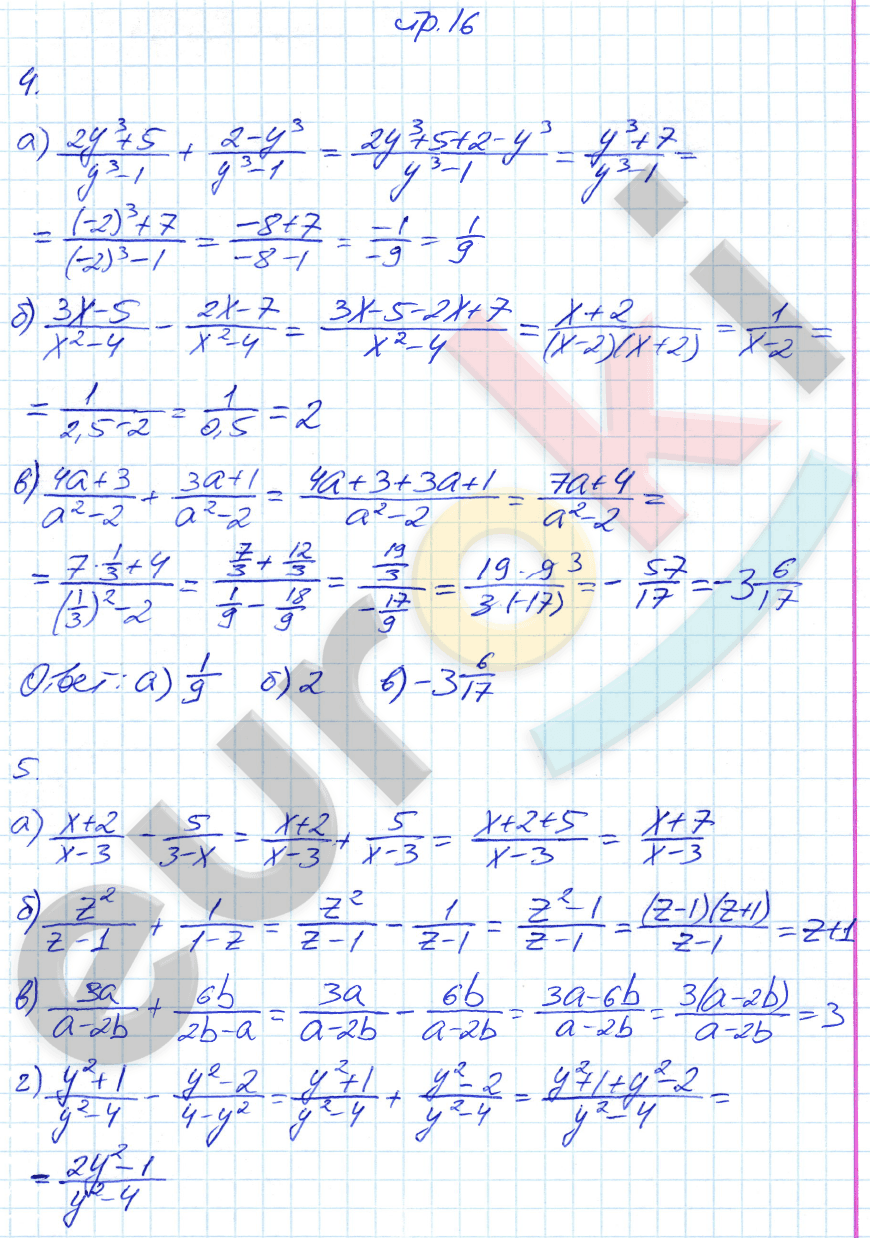 стр. 16
4.
а) (2y³+5)/(y³-1) + (2-y³)/(y³-1) = (2y³+5+2-y³)/(y³-1) = (y³+7)/(y³-1) =
= ((-2)³+7)/((-2)³-1) = (-8+7)/(-8-1) = (-1)/(-9) = 1/9
б) (3x-5)/(x²-4) - (2x-7)/(x²-4) = (3x-5-2x+7)/(x²-4) = (x+2)/((x-2)(x+2)) = 1/(x-2) =
= 1/(2,5-2) = 1/(0,5) = 2
в) (4a+3)/(a²-2) + (3a+1)/(a²-2) = (4a+3+3a+1)/(a²-2) = (7a+4)/(a²-2) =
= (7·1/3+4)/((1/3)²-2) = (7/3+12/3)/(1/9-18/9) = (19/3)/(-17/9) = (19·9³)/(3·(-17)) = -57/17 = -3 6/17
Ответ: а) 1/9 б) 2 в) -3 6/17
5.
а) (x+2)/(x-3) - 5/(3-x) = (x+2)/(x-3) + 5/(x-3) = (x+2+5)/(x-3) = (x+7)/(x-3)
б) z²/(z-1) + 1/(1-z) = z²/(z-1) - 1/(z-1) = (z²-1)/(z-1) = ((z-1)(z+1))/(z-1) = z+1
в) 3a/(a-2b) + 6b/(2b-a) = 3a/(a-2b) - 6b/(a-2b) = (3a-6b)/(a-2b) = (3(a-2b))/(a-2b) = 3
г) (y²+1)/(y²-4) - (y²-2)/(4-y²) = (y²+1)/(y²-4) + (y²-2)/(y²-4) = (y²+1+y²-2)/(y²-4) =
= (2y²-1)/(y²-4)
euroki